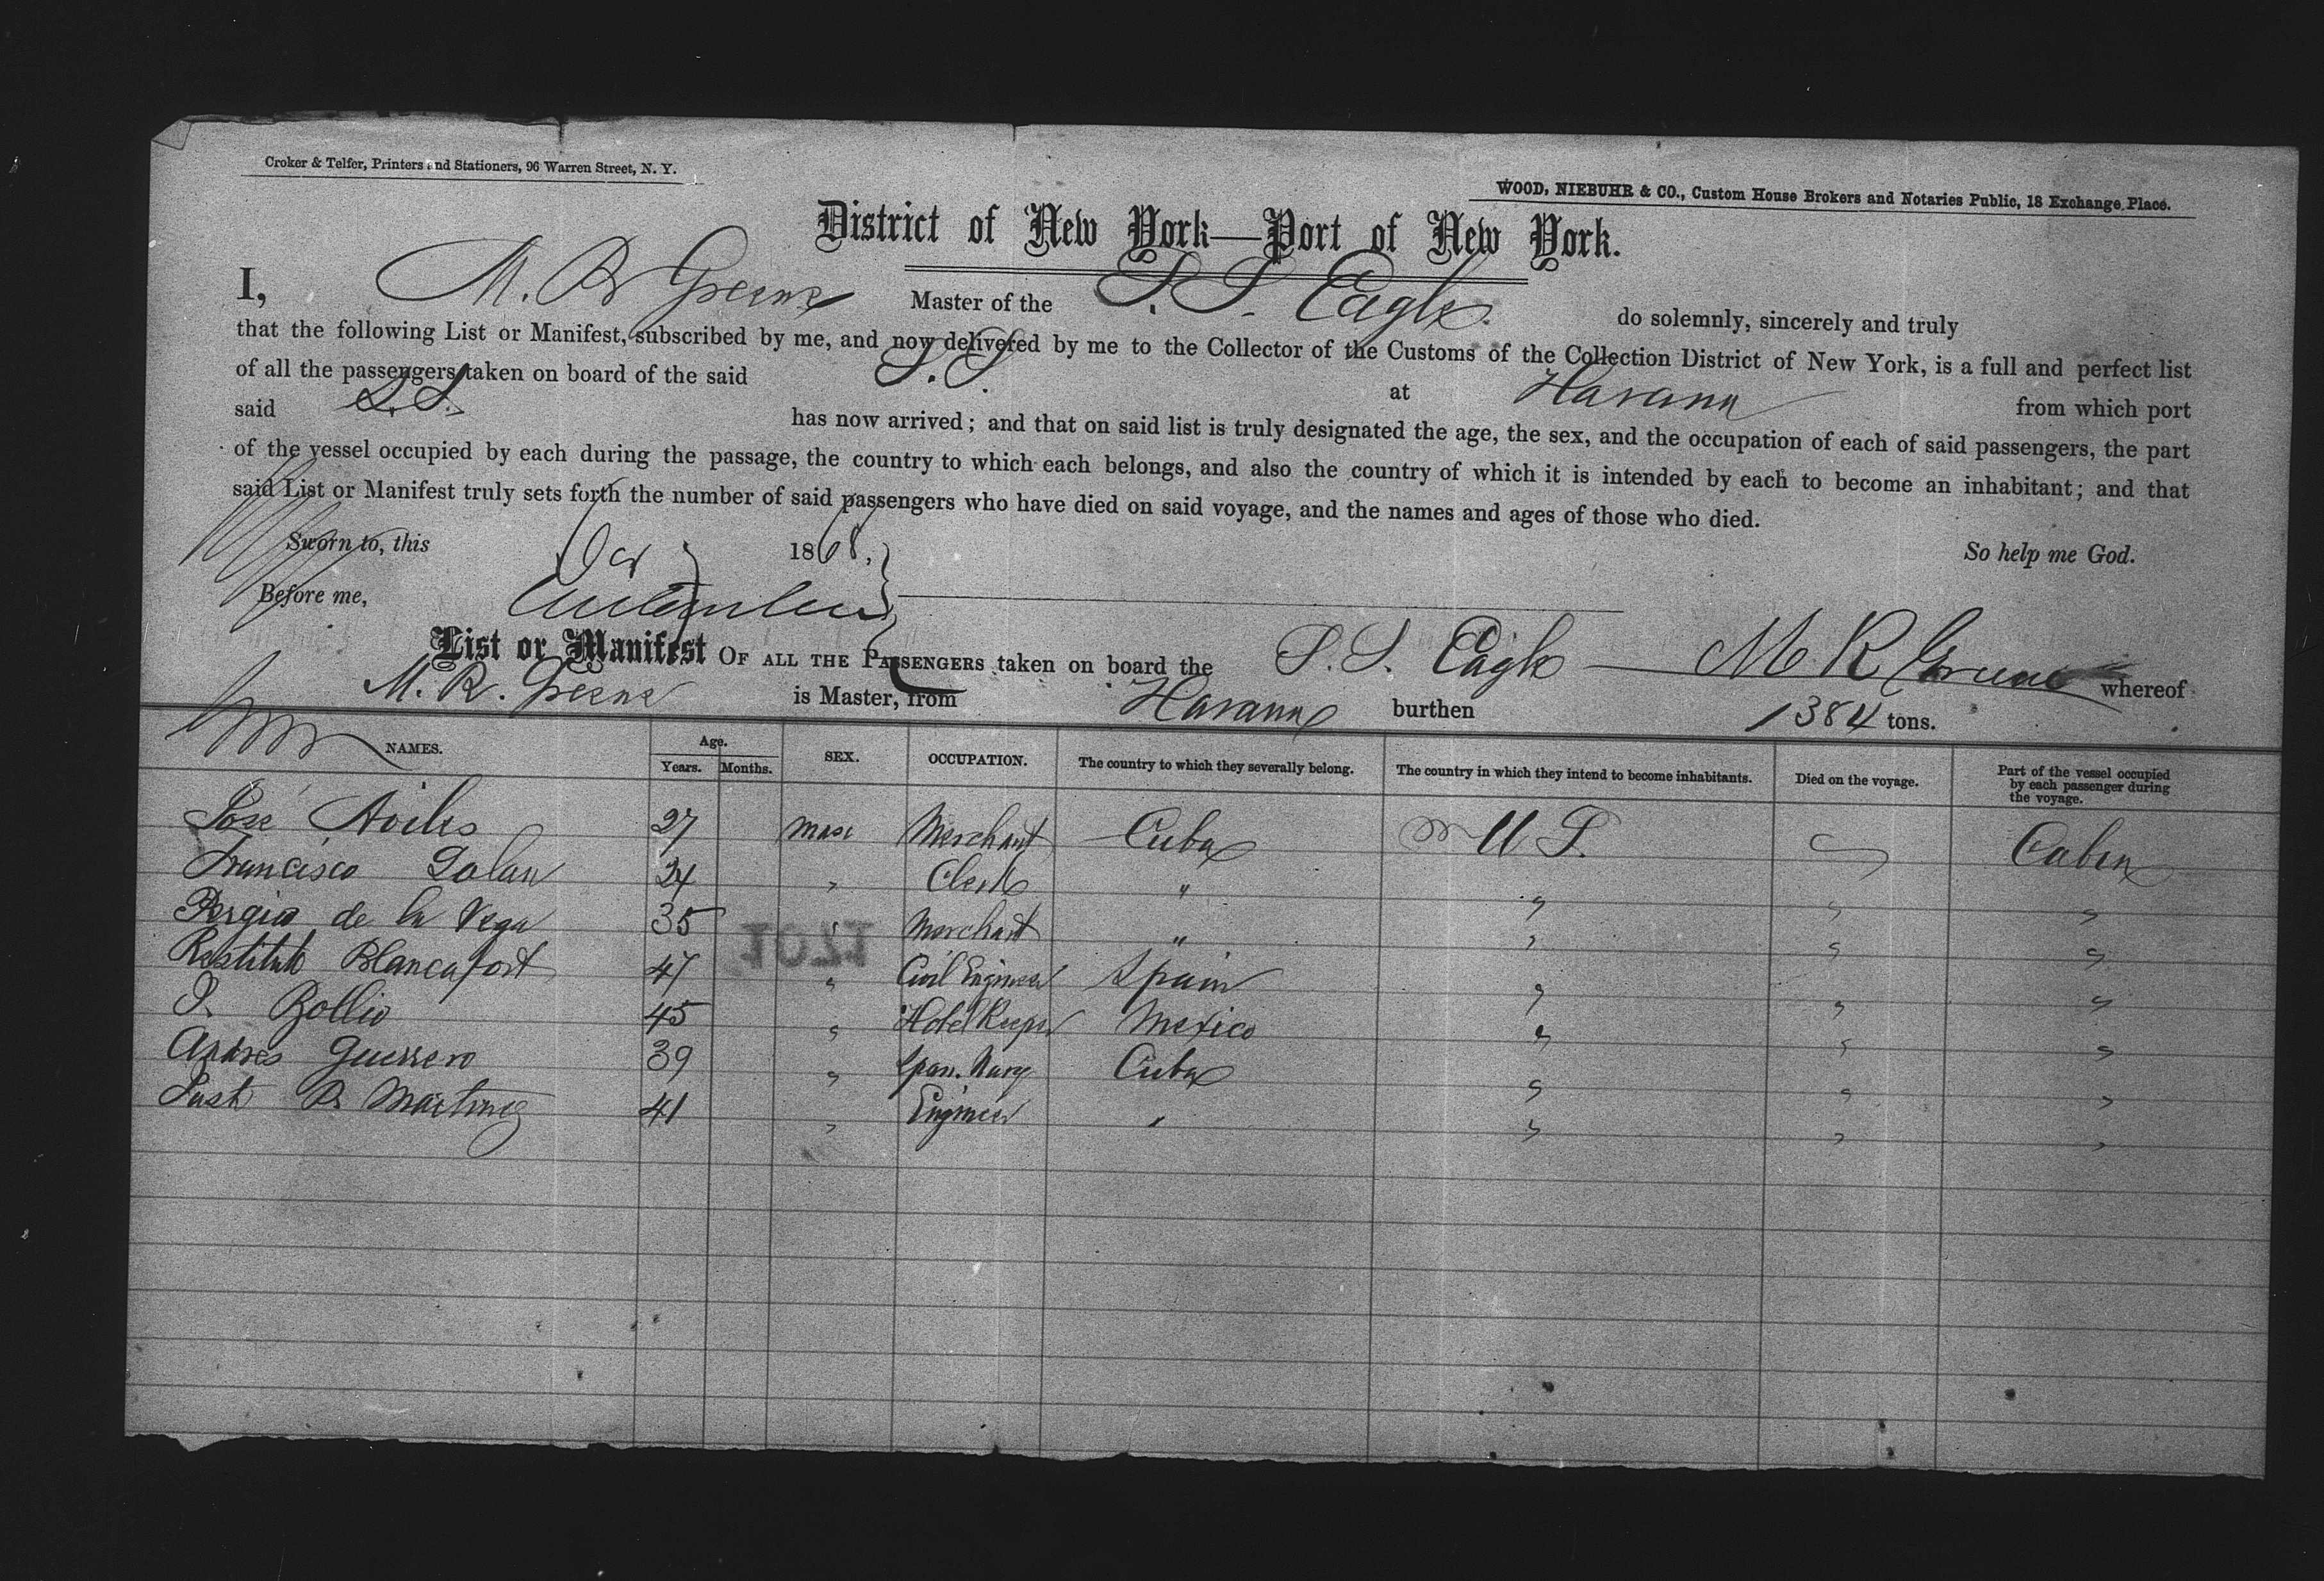 Croker & Telfer, Printers and Stationers, 96 Warren Street, N. Y.
WOOD, NIEBUHR & CO., Custom House Brokers and Notaries Public, 18 Exchange Place.
District of New York—Port of New York.
I, M. R Greene Master of the S. S. Eagle do solemnly, sincerely and truly
that the following List or Manifest, subscribed by me, and now delivered by me to the Collector of the Customs of the Collection District of New York, is a full and perfect list
of all the passengers taken on board of the said S. S. at Havana from which port
said S. S. has now arrived; and that on said list is truly designated the age, the sex, and the occupation of each of said passengers, the part
of the vessel occupied by each during the passage, the country to which each belongs, and also the country of which it is intended by each to become an inhabitant; and that
said List or Manifest truly sets forth the number of said passengers who have died on said voyage, and the names and ages of those who died.
Sworn to, this 1868, So help me God.
Before me,
List or Manifest OF ALL THE PASSENGERS taken on board the S. S. Eagle — M R Greene whereof
M. R. Greene is Master, from Havana burthen 1384 tons.
NAMES. Age. Years. Months. SEX. OCCUPATION. The country to which they severally belong. The country in which they intend to become inhabitants. Died on the voyage. Part of the vessel occupied by each passenger during the voyage.
Jose Aviles 27 Merchant Cuba U S. Cabin
Francisco 24 " Clerk " " " "
de la Vega 35 " Merchant " " " "
Restituto Blancafort 47 " Civil Engineer Spain " " "
45 " Hotel Keeper Mexico " " "
Andres Guerrero 39 " Span. Navy Cuba " " "
Martinez 41 " Engineer " " " "
1071